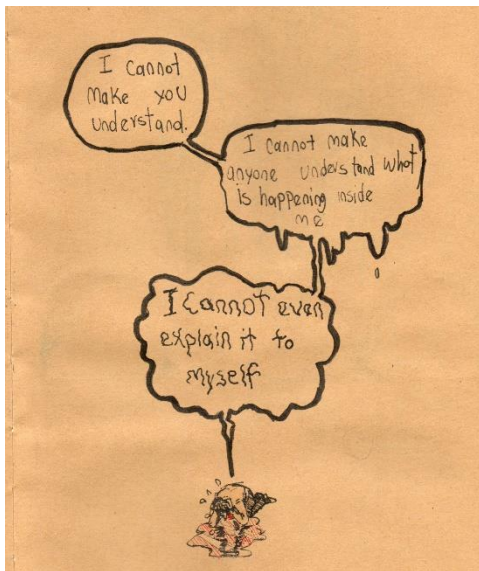 I cannot
make you
understand.
I cannot make
anyone understand what
is happening inside
me
I cannot even
explain it to
myself